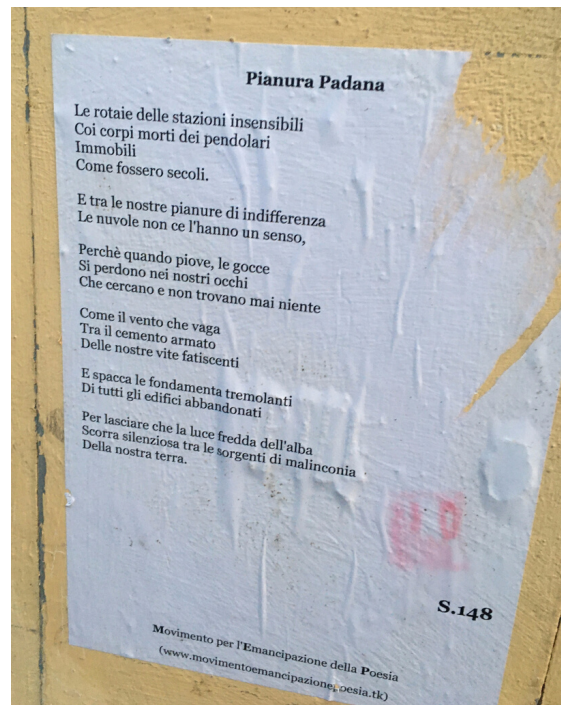 Pianura Padana
Le rotaie delle stazioni insensibili
Coi corpi morti dei pendolari
Immobili
Come fossero secoli.
E tra le nostre pianure di indifferenza
Le nuvole non ce l'hanno un senso,
Perchè quando piove, le gocce
Si perdono nei nostri occhi
Che cercano e non trovano mai niente
Come il vento che vaga
Tra il cemento armato
Delle nostre vite fatiscenti
E spacca le fondamenta tremolanti
Di tutti gli edifici abbandonati
Per lasciare che la luce fredda dell'alba
Scorra silenziosa tra le sorgenti di malinconia
Della nostra terra.
S.148
Movimento per l'Emancipazione della Poesia
(www.movimentoemancipazionepoesia.tk)